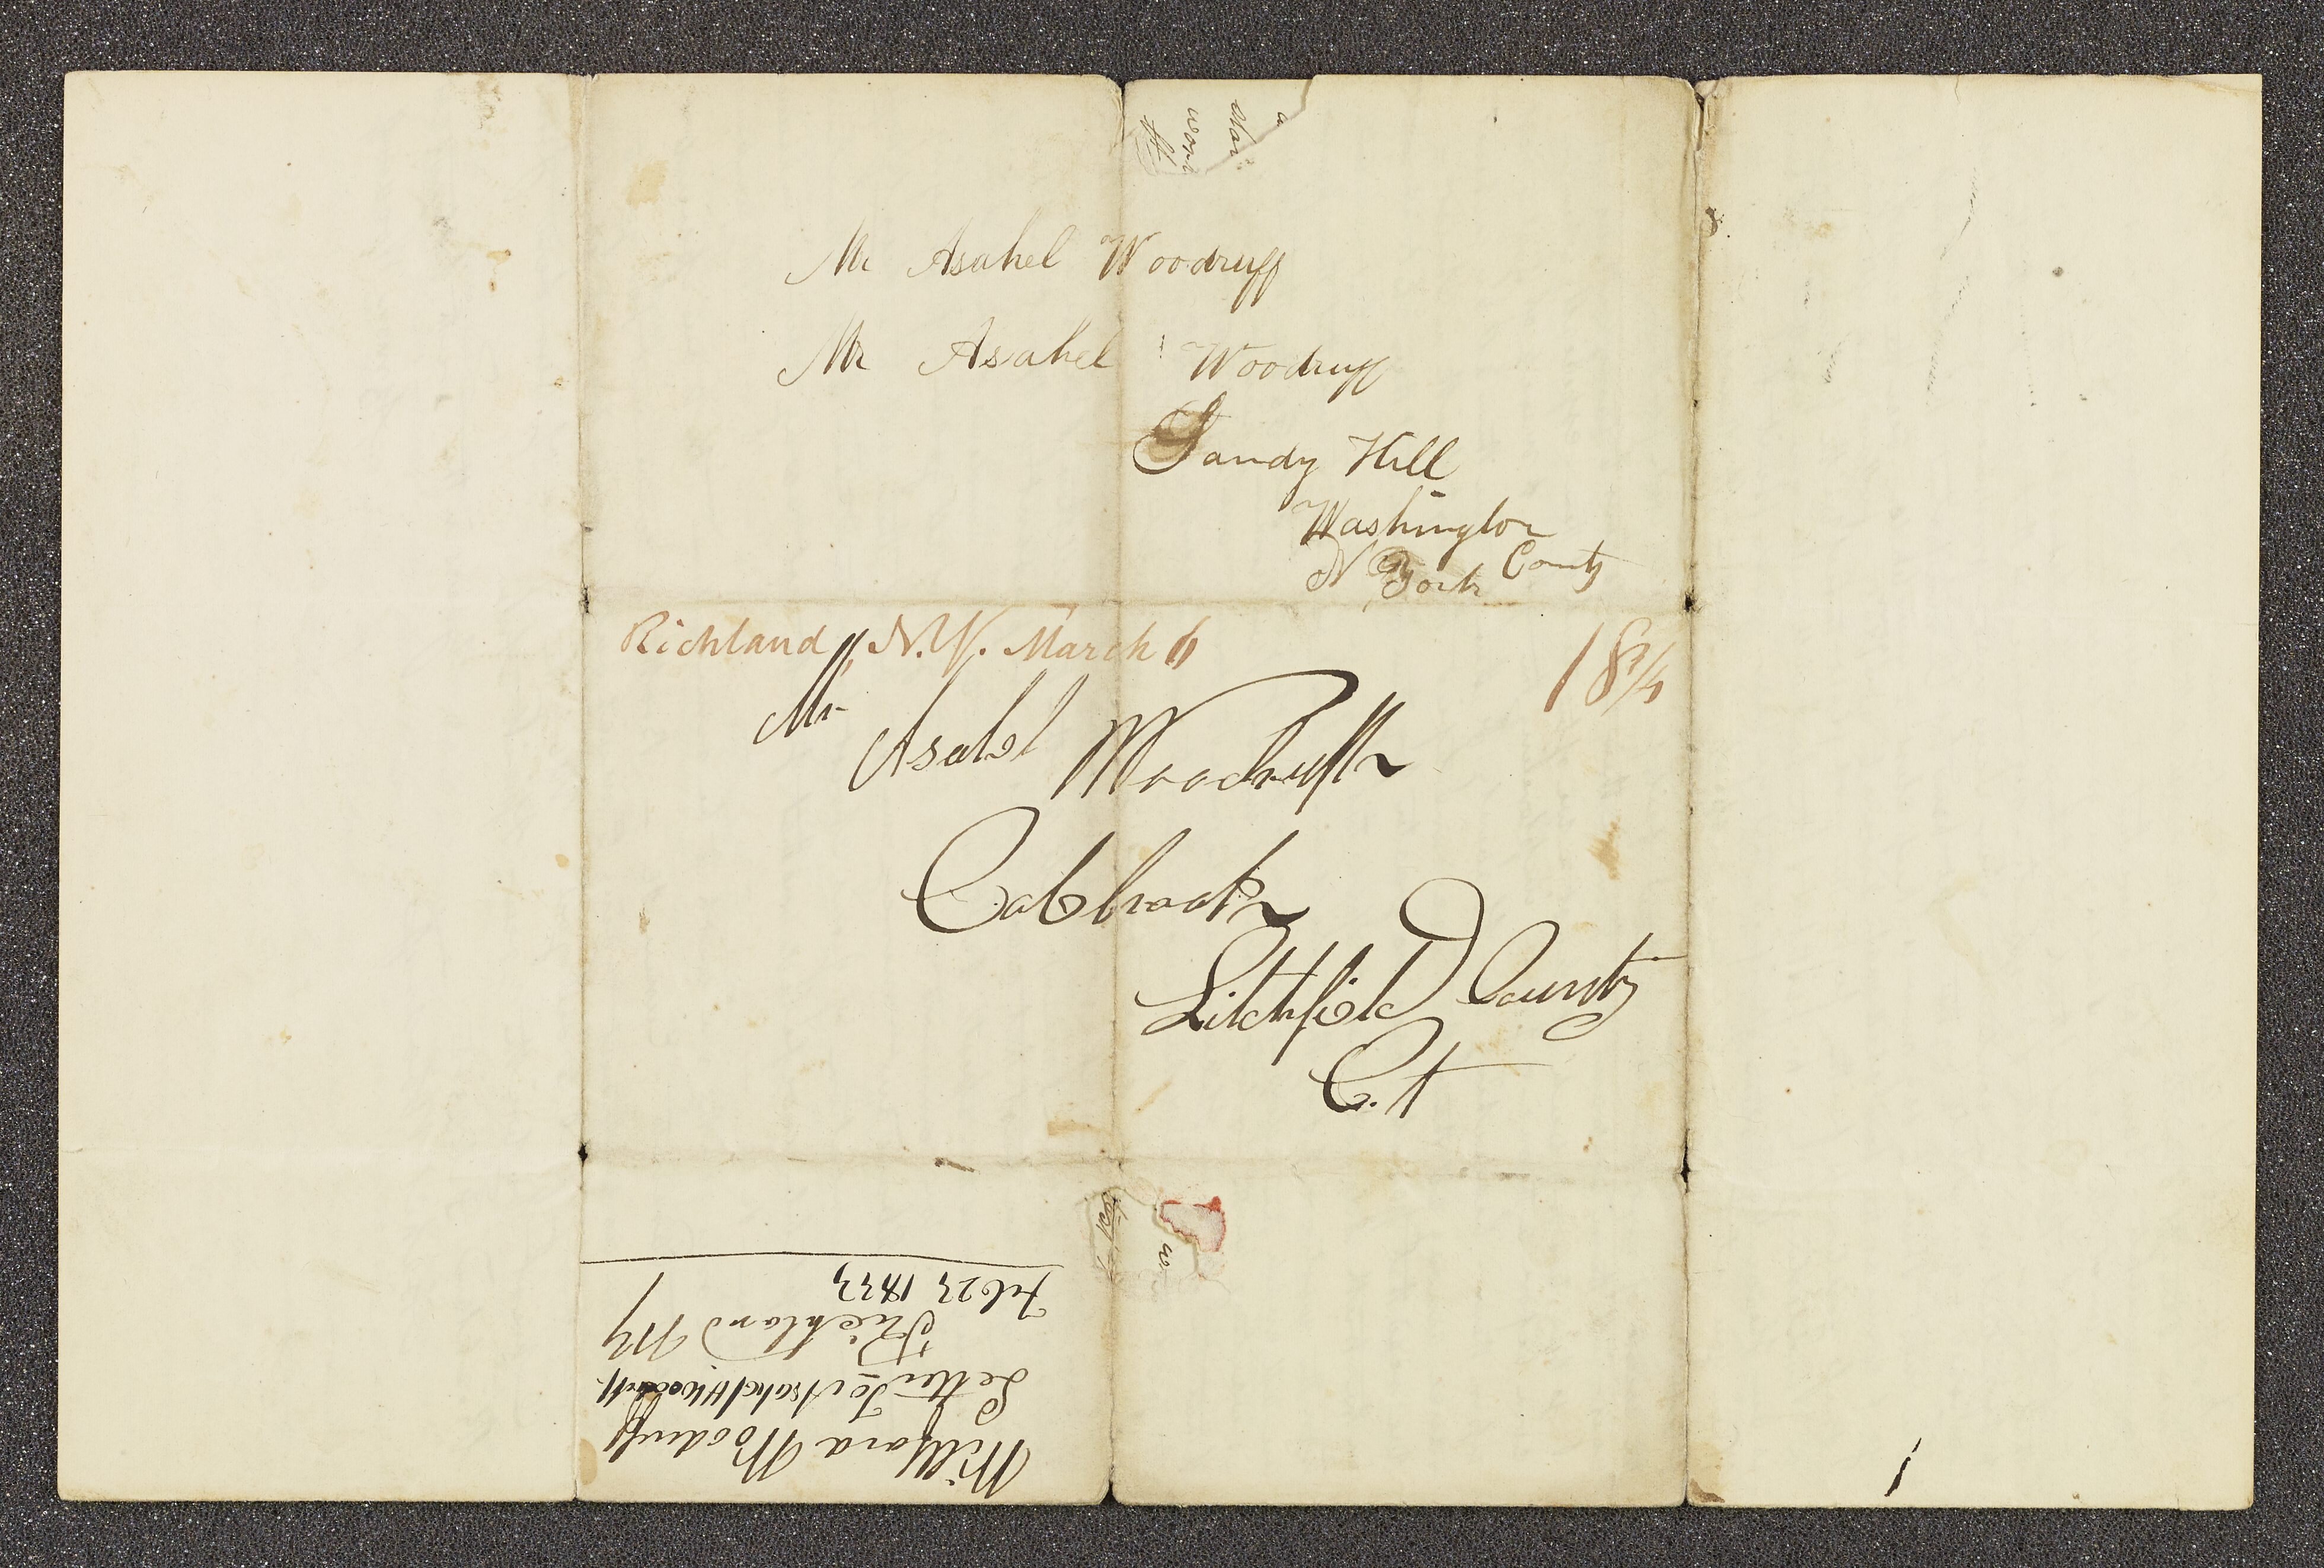 a
war
wor
Mr Asahel Woodruff
Mr Asahel Woodruff
Sandy Hill
Washington
County
N York
Richland N.Y. March 6
18 3/4
Mr Asahel Woodruff
Colebrook
Litchfield County
C.t
wo
Willford Woodruff
Letter To Asahel H Woodruff
Richland NY
Feb 27 1833